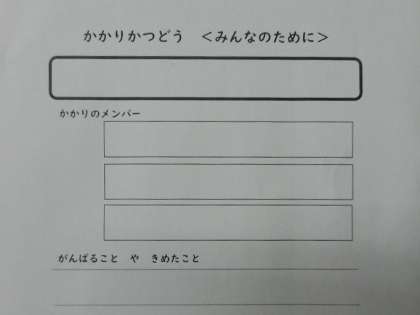 かかりかつどう　＜みんなのために＞
かかりのメンバー
がんばること　や　きめたこと